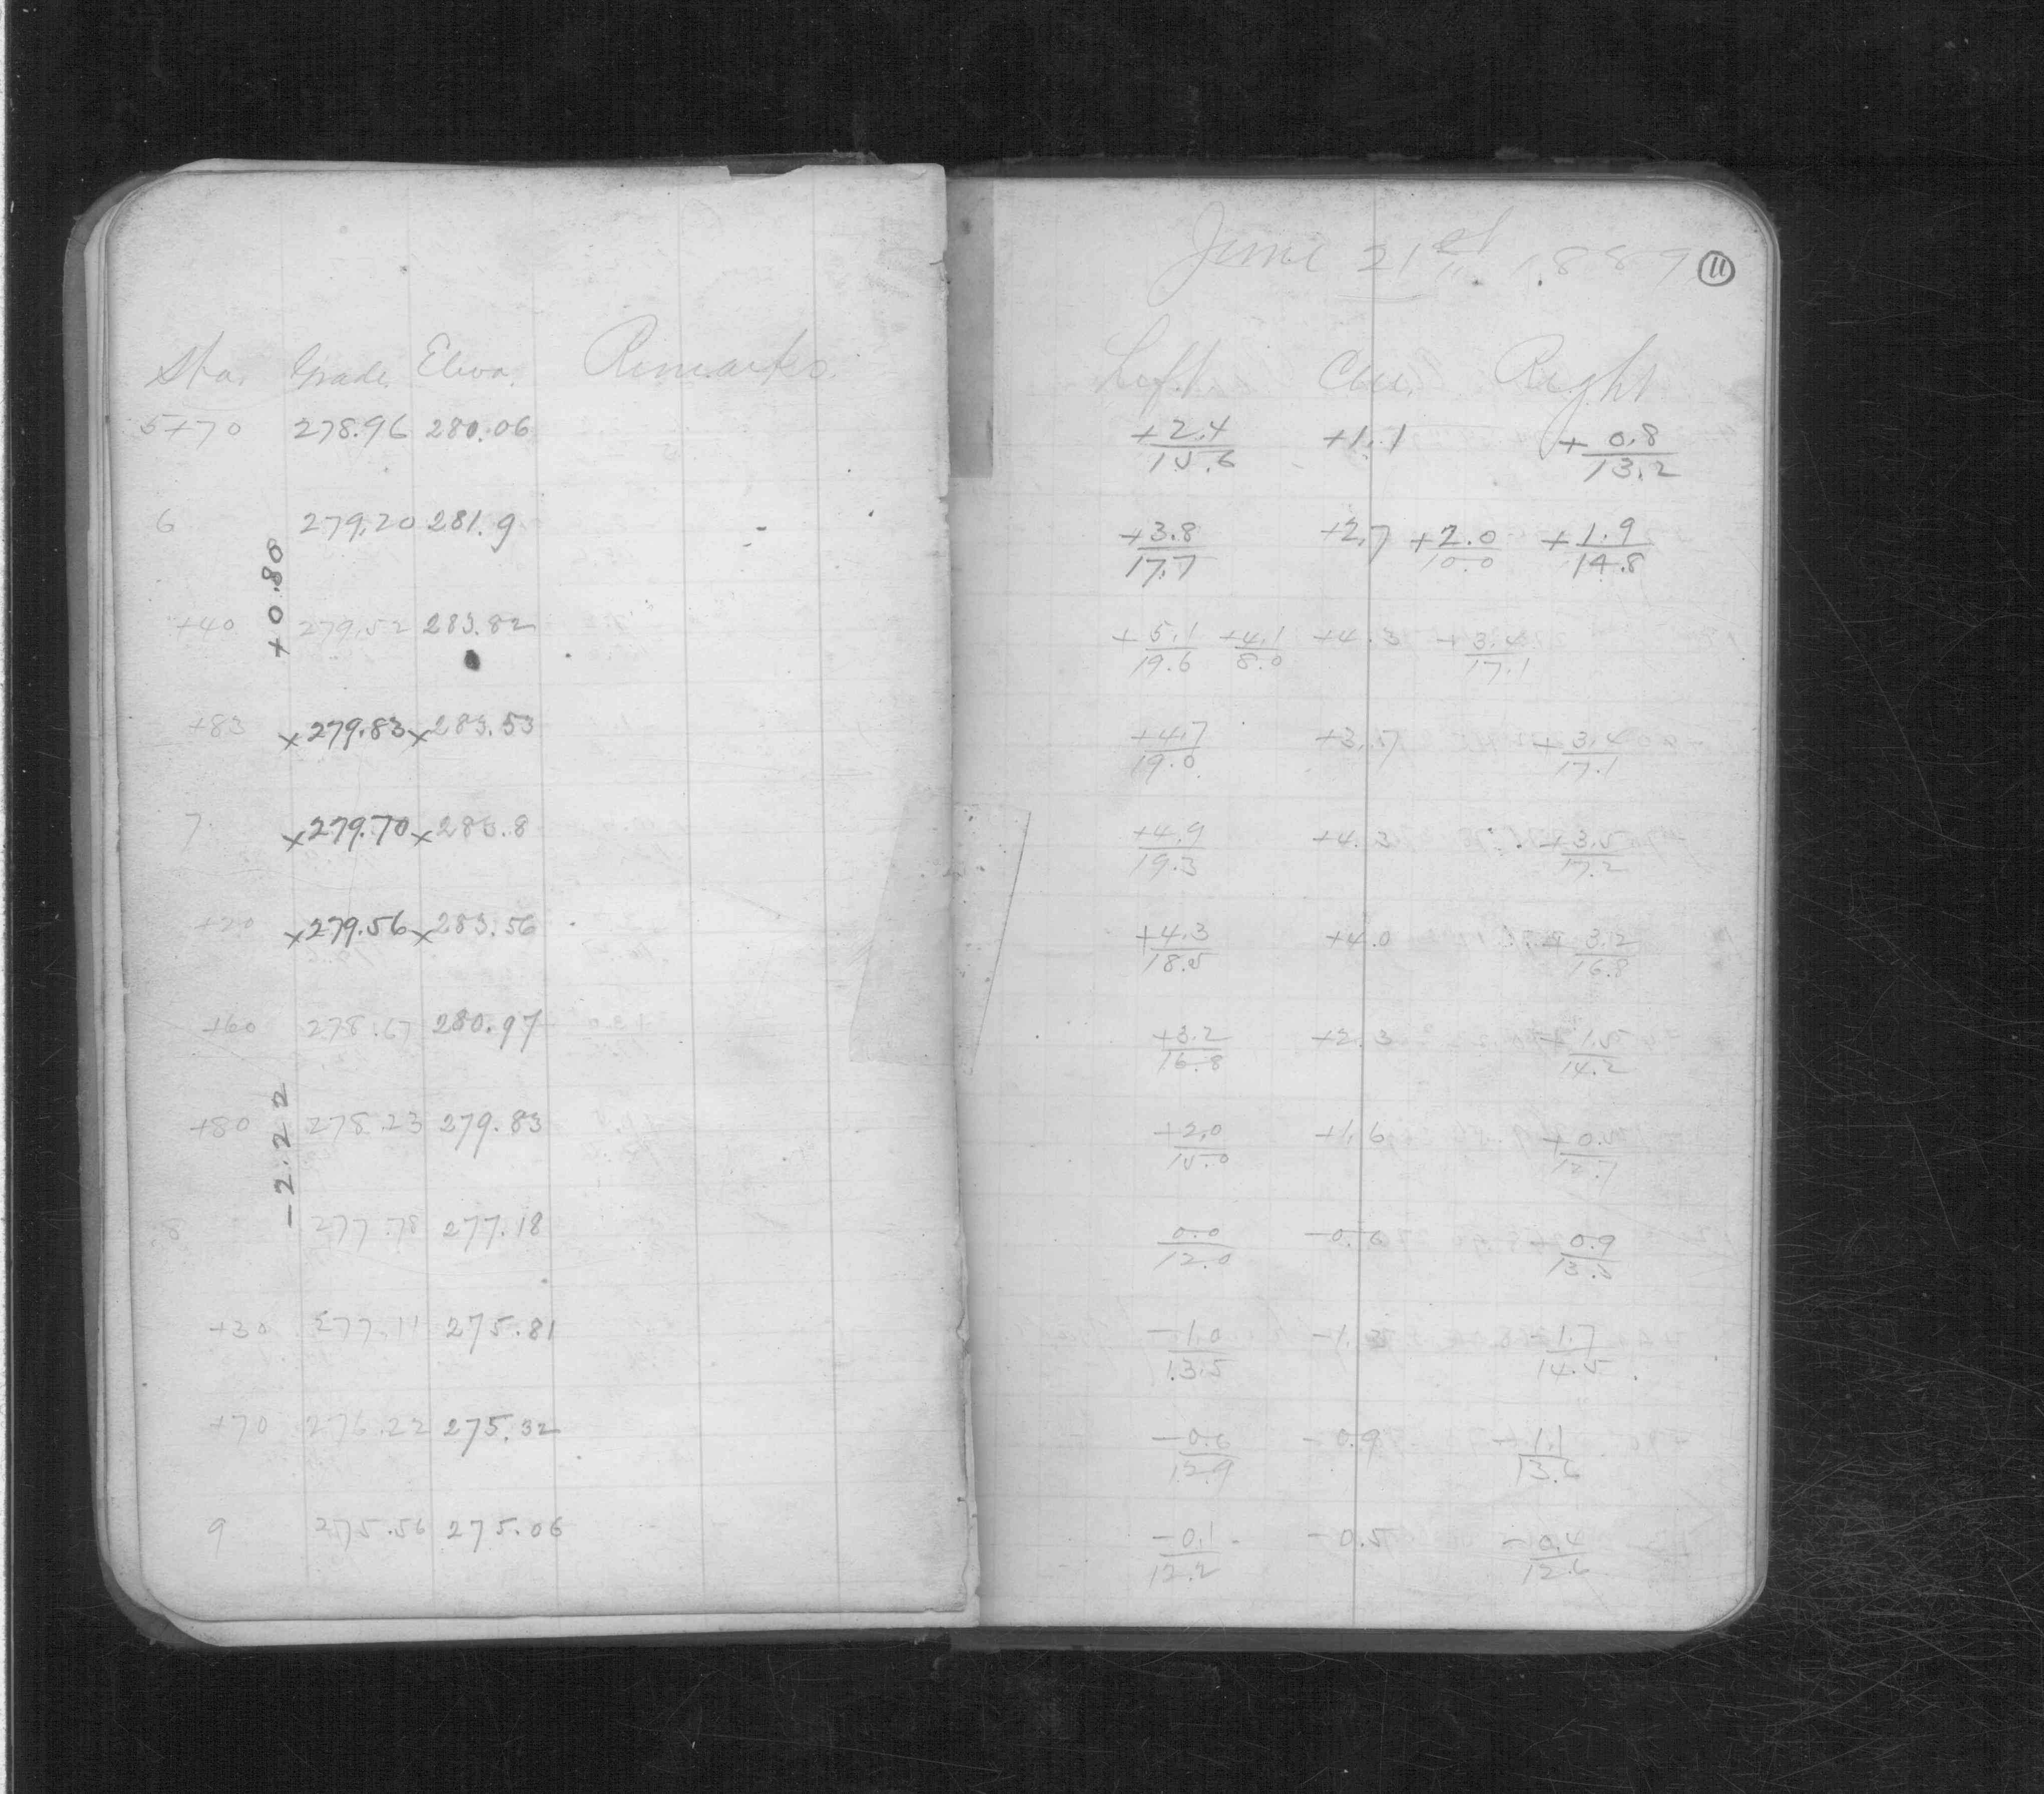 June 21st 1889 11
Sta. Grade Eleva. Remarks. Left Cen. Right
5+70 278.96 280.06 +2.4/15.6 +1.1 +0.8/13.2
6 279.20 281.9 +3.8/17.7 +2.7 +2.0/10.0 +1.9/14.8
+0.80
+40 279.52 283.82 +5.1/19.6 +4.1/8.0 +4.3 +3.4/17.1
+83 x279.83 x283.53 +4.7/19.0 +3.7 +3.4/17.1
7 x279.70 x283.8 +4.9/19.3 +4.3 +3.5/17.2
+20 x279.56 x283.56 +4.3/18.5 +4.0 +3.2/16.8
+60 278.67 280.97 +3.2/16.8 +2.3 +1.5/14.2
-2.22
+80 278.23 279.83 +2.0/15.0 +1.6 +0.5/12.7
8 277.78 277.18 0.0/12.0 -0.6 0.9/13.
+30 277.11 275.81 -1.0/13.5 -1.3 -1.7/14.5
+70 276.22 275.32 -0.6/12.9 -0.9 -1.1/13.6
9 275.56 275.06 -0.1/12.2 -0.5 -0.4/12.6